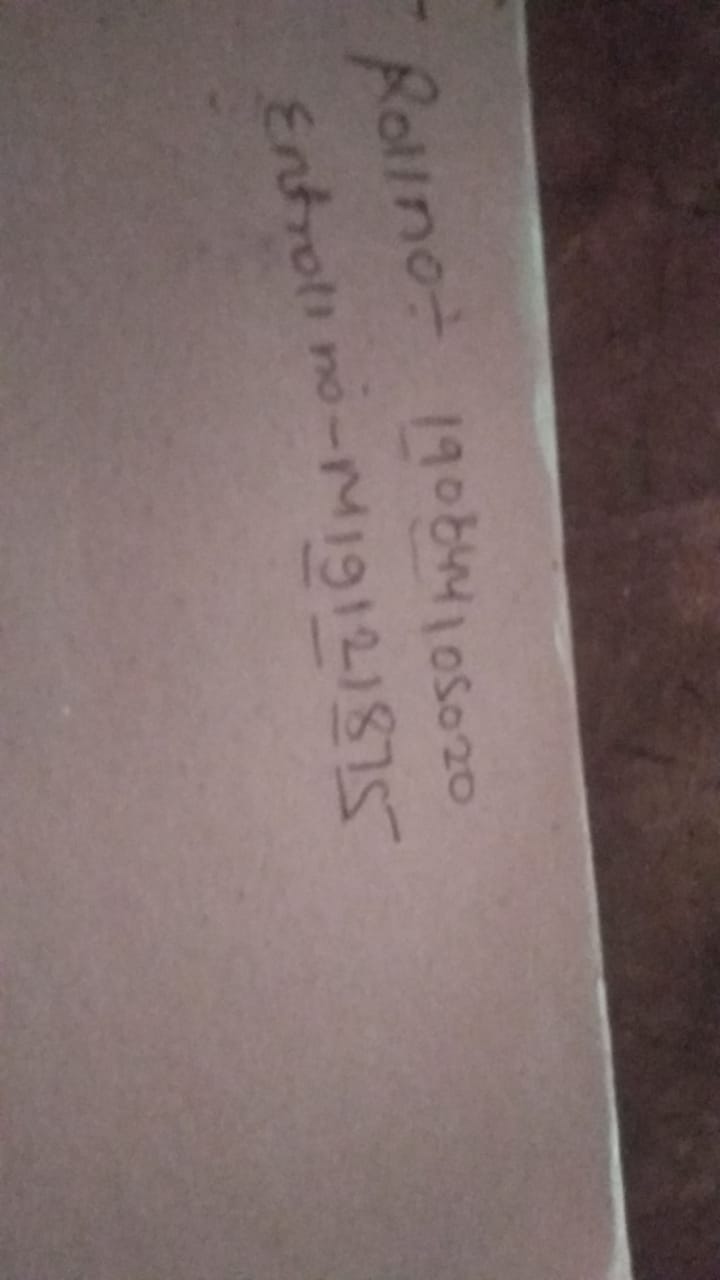 Rollno÷ 1908441105020
Entroll no-M19121875